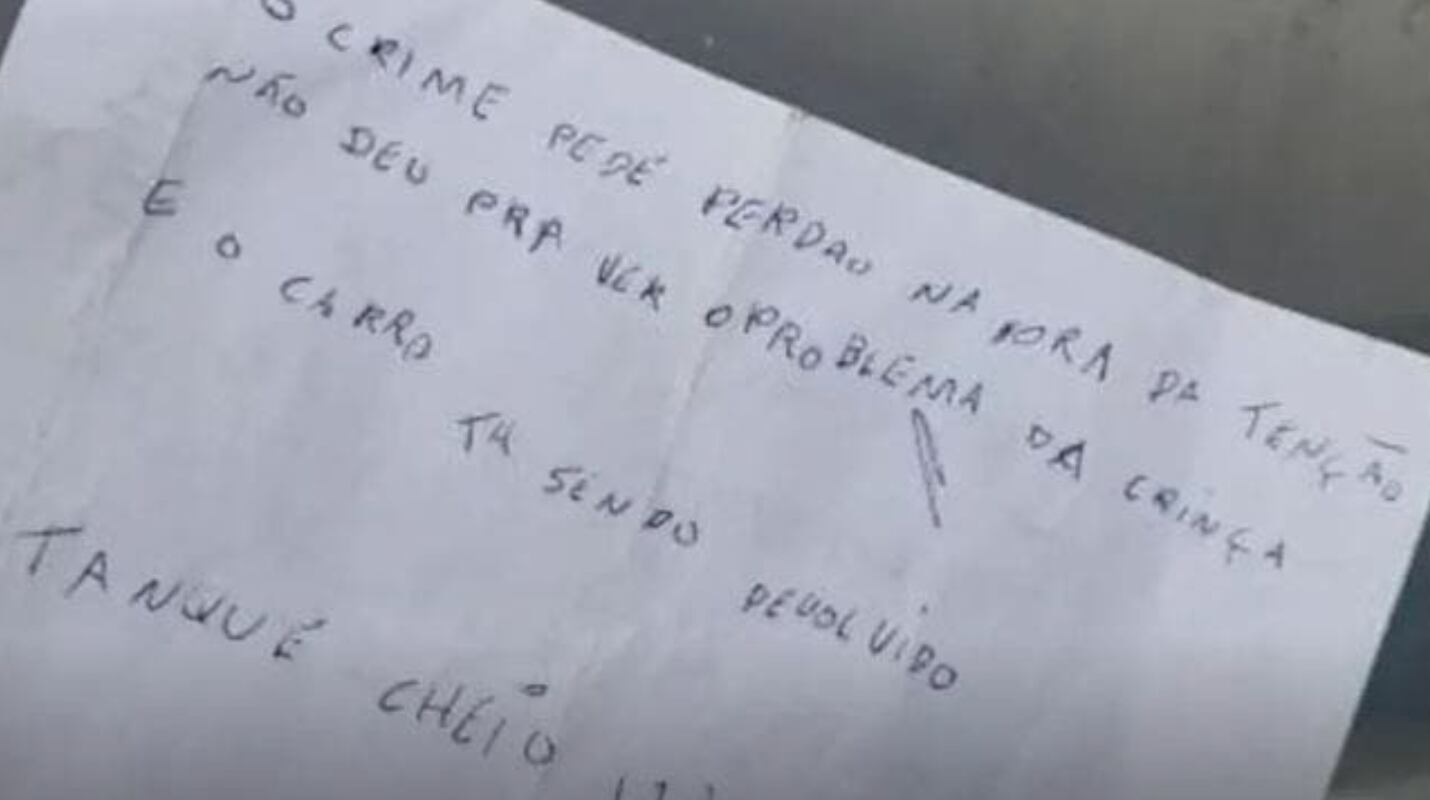 O CRIME PEDÉ PERDAO NA HORA DA TENÇÃO
NÃO DEU PRA VER O PROBLEMA DA CRINÇA
E O CARRO TA SENDO DEVOLVIDO
TANQUÉ CHEIO